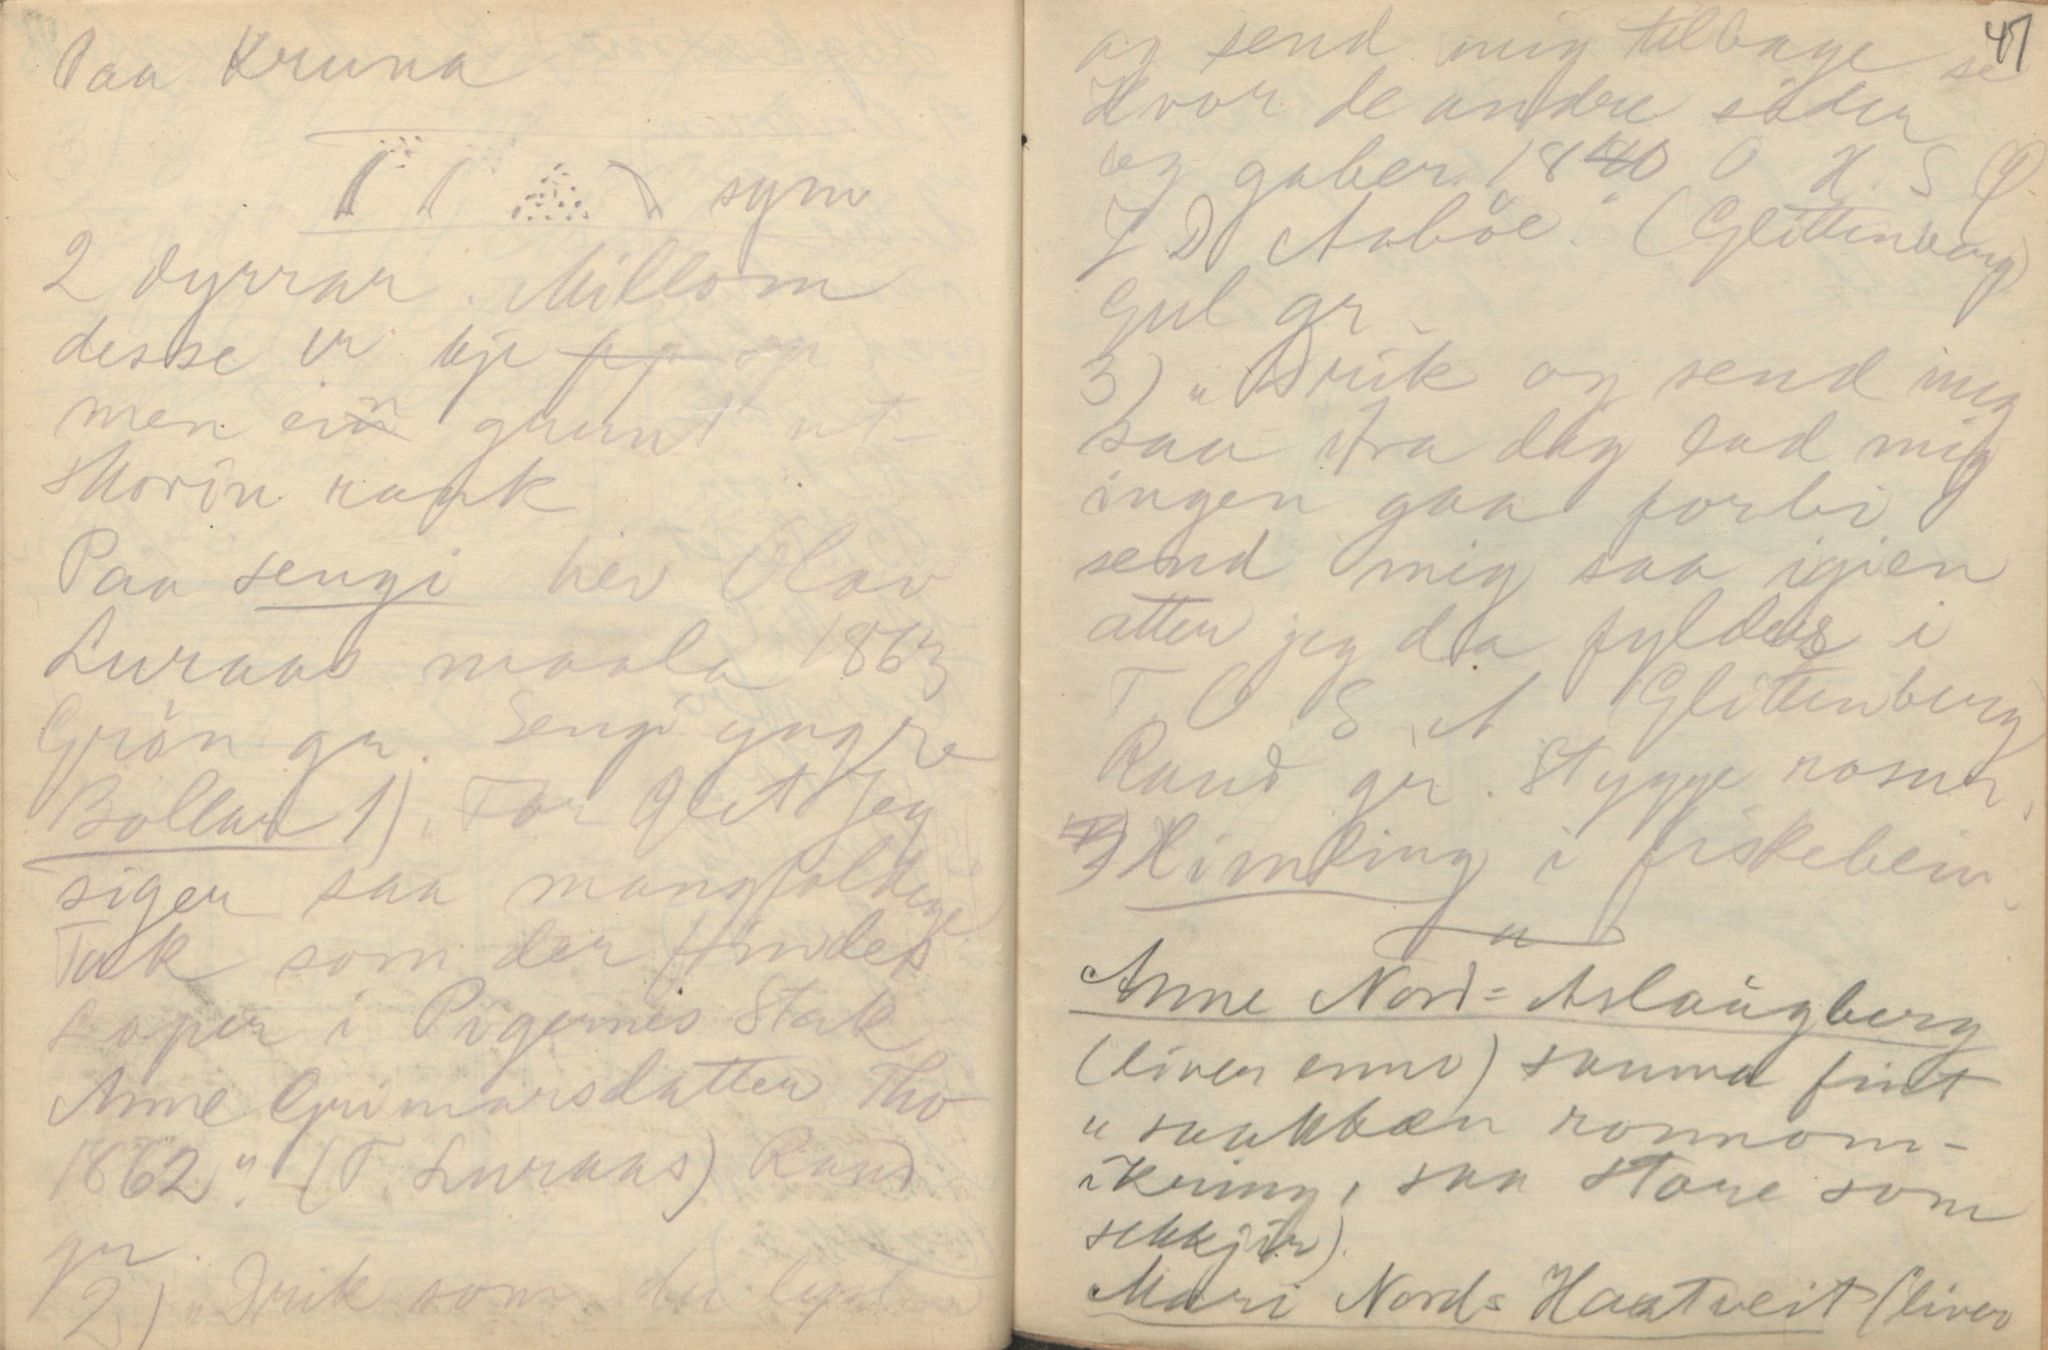 Paa Kruna
sym
2 dyrrar. Millom
desse er kje op
men ein grunt ut-
skorin rank
Paa sengi hev Olav
Luraas maala 1863
Grön gr. Sengi yngre
Bollar 1) Tor Glet Jeg
siger saa mangfoldige
Tak som der findes
Loper i Pigernes Stak
Anne Grimarsdatter Tho
1862" (T. Luraas) Rand
gr.
2) "Drik som du lyster
47
og send mig tilbage se
Hvor de andre sider
og gaber 1840 O H. S
Z D Aaböe" (Glittenberg)
Gul gr.
3) "Drik og send mig
saa fra dig lad mig
ingen gaa forbi
send mig saa igien
atter jeg da fyldes i
T. O. S. A Glittenberg)
Raud gr. Stygge rosur.
Himling i fiskebein
"
Anne Nord-Aslaugberg
(liver enno) sauma fint
" saakkæn ronnom-
ikring, saa store som
sekkjir).
Mari Nord-Haatveit (liver